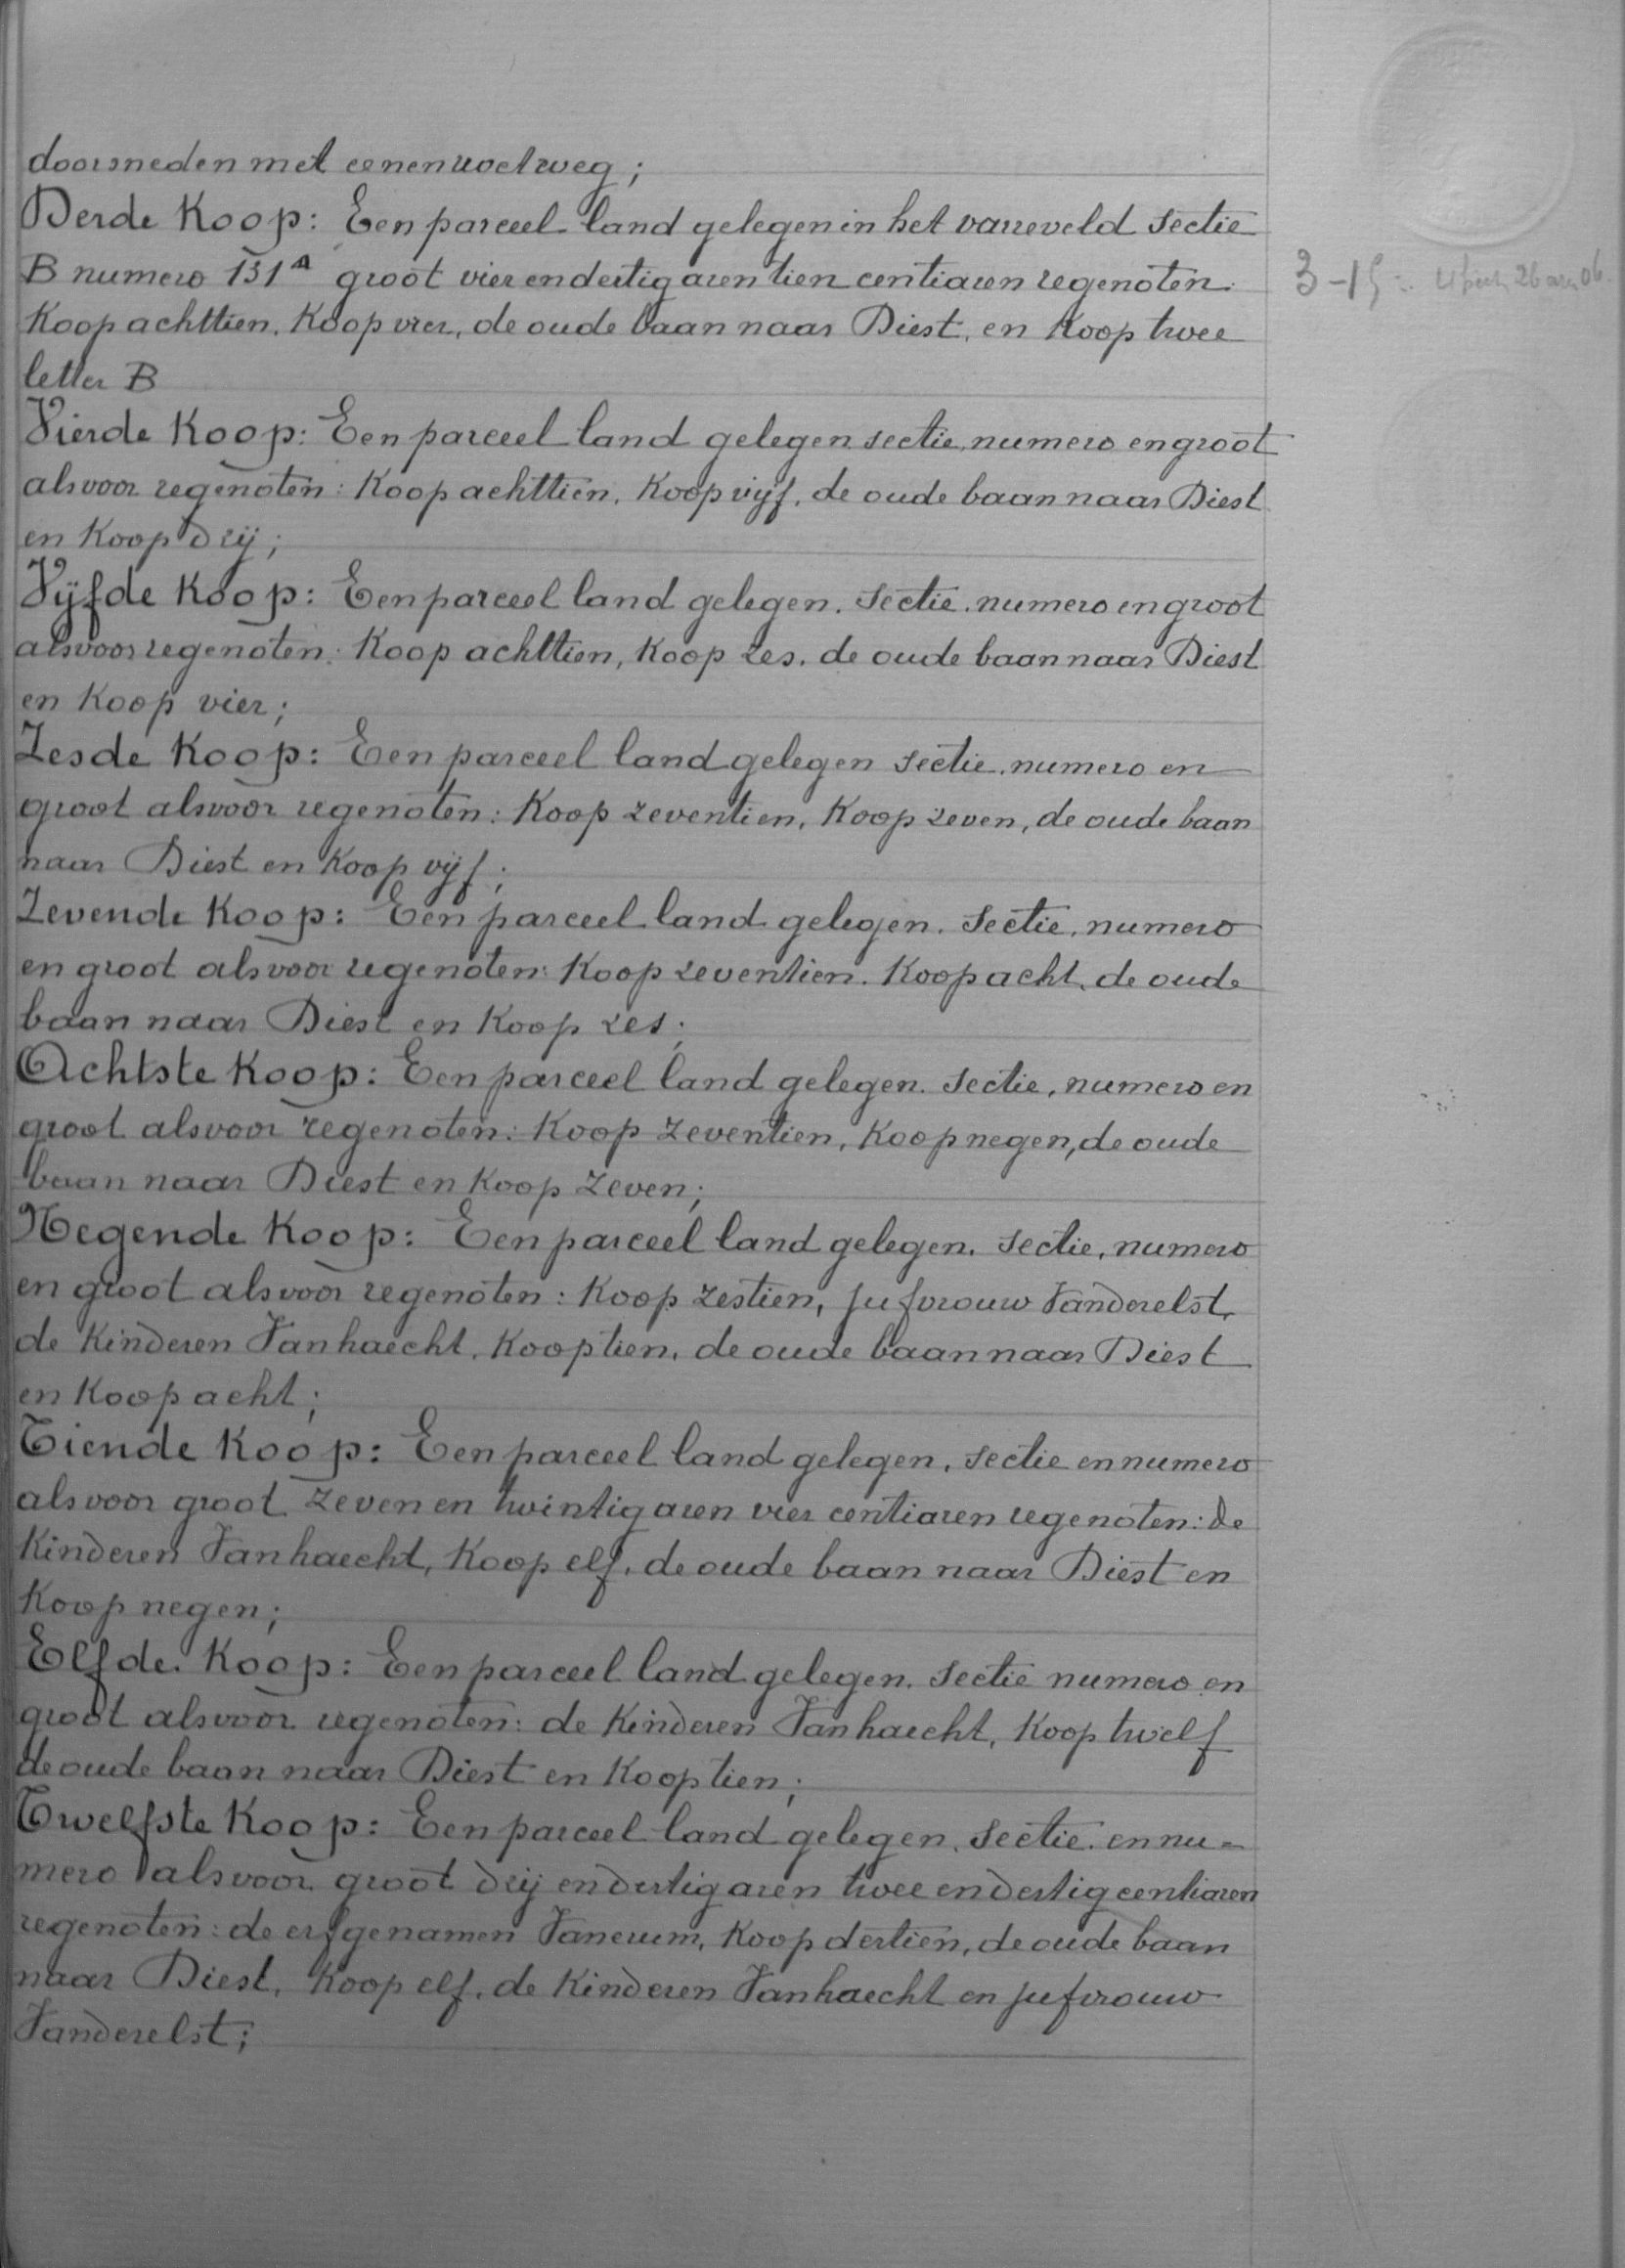 doorsneden met eenen voetweg;
Derde Koop: Een parceel land gelegen in het varreveld sectie
B numero 131A groot vier en dertig aren tien centiaren regenoten.
3-15 = 4 hect 26 aren 06.
Koop achttien, Koop vier, de oude baan naar Diest, en Koop twee
letter B
Vierde Koop: Een parceel land gelegen sectie, numero en groot
alsvoor regenoten: Koop achttien, Koop vijf, de oude baan naar Diest
en Koop drij;
Vijfde Koop: Een parceel land gelegen, sectie, numero en groot
alsvoor regenoten: Koop achttien, Koop zes, de oude baan naar Diest
en Koop vier;
Zesde Koop: Een parceel land gelegen sectie, numero en
groot alsvoor regenoten: Koop zeventien, Koop zeven, de oude baan
naar Diest en Koop vijf;
Zevende Koop: Een parceel land gelegen, sectie, numero
en groot alsvoor regenoten: Koop zeventien, Koop acht, de oude
baan naar Diest en Koop zes;
Achtste Koop: Een parceel land gelegen, sectie, numero en
groot alsvoor regenoten: Koop zeventien, Koop negen, de oude
baan naar Diest en Koop zeven;
Negende Koop: Een parceel land gelegen, sectie, numero
en groot alsvoor regenoten: Koop zestien, jufvrouw Vanderelst,
de Kinderen Vanhaecht, Koop tien, de oude baan naar Diest
en Koop acht;
Tiende Koop: Een parceel land gelegen, sectie en numero
alsvoor groot zeven en twintig aren vier centiaren regenoten: de
Kinderen Vanhaecht, Koop elf, de oude baan naar Diest en
Koop negen;
Elfde Koop: Een parceel land gelegen, sectie numero en
groot alsvoor regenoten: de Kinderen Vanhaecht, Koop twelf
de oude baan naar Diest en Koop tien;
Twelfste Koop: Een parceel land gelegen, sectie en nu=
mero alsvoor groot drij en dertig aren twee en dertig centiaren
regenoten: de erfgenamen Vanerum, Koop dertien, de oude baan
naar Diest, Koop elf, de Kinderen Vanhaecht en jufvrouw
Vanderelst;